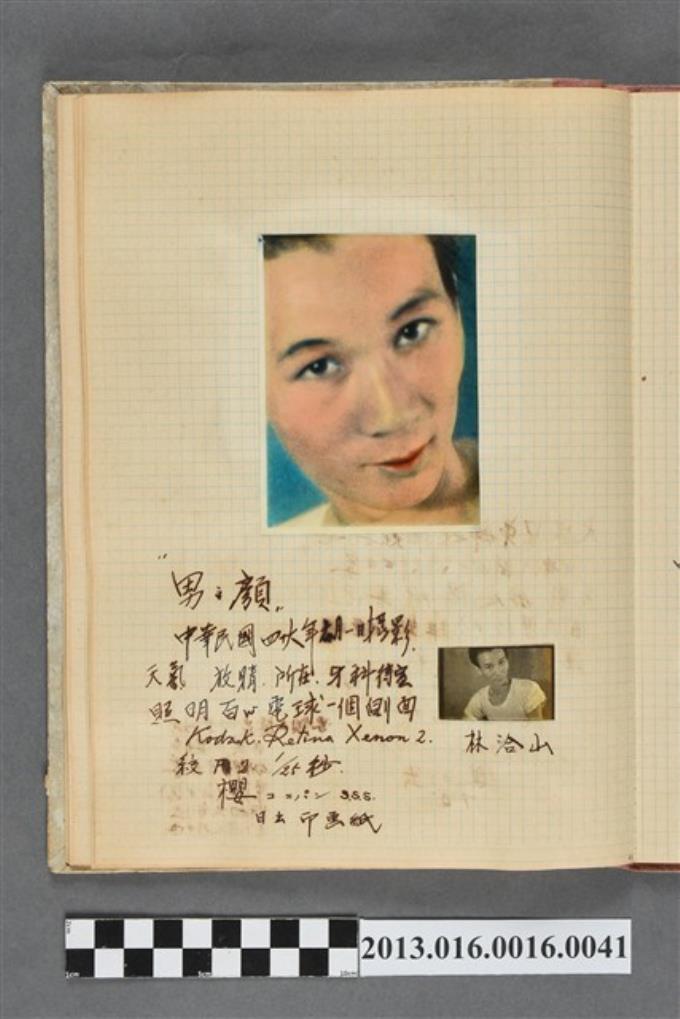 "男之顔"
中華民國四十六年 月一日攝影.
天氣 放晴.所在.牙科待室
照明百W電球一個側面
Kodak. Retina Xenon 2.
林洽山
絞 用2 1/25秒.
櫻 コ ハン S.S.S.
日出印画紙
2cm
1cm
5cm
10cm
2013.016.0016.0041